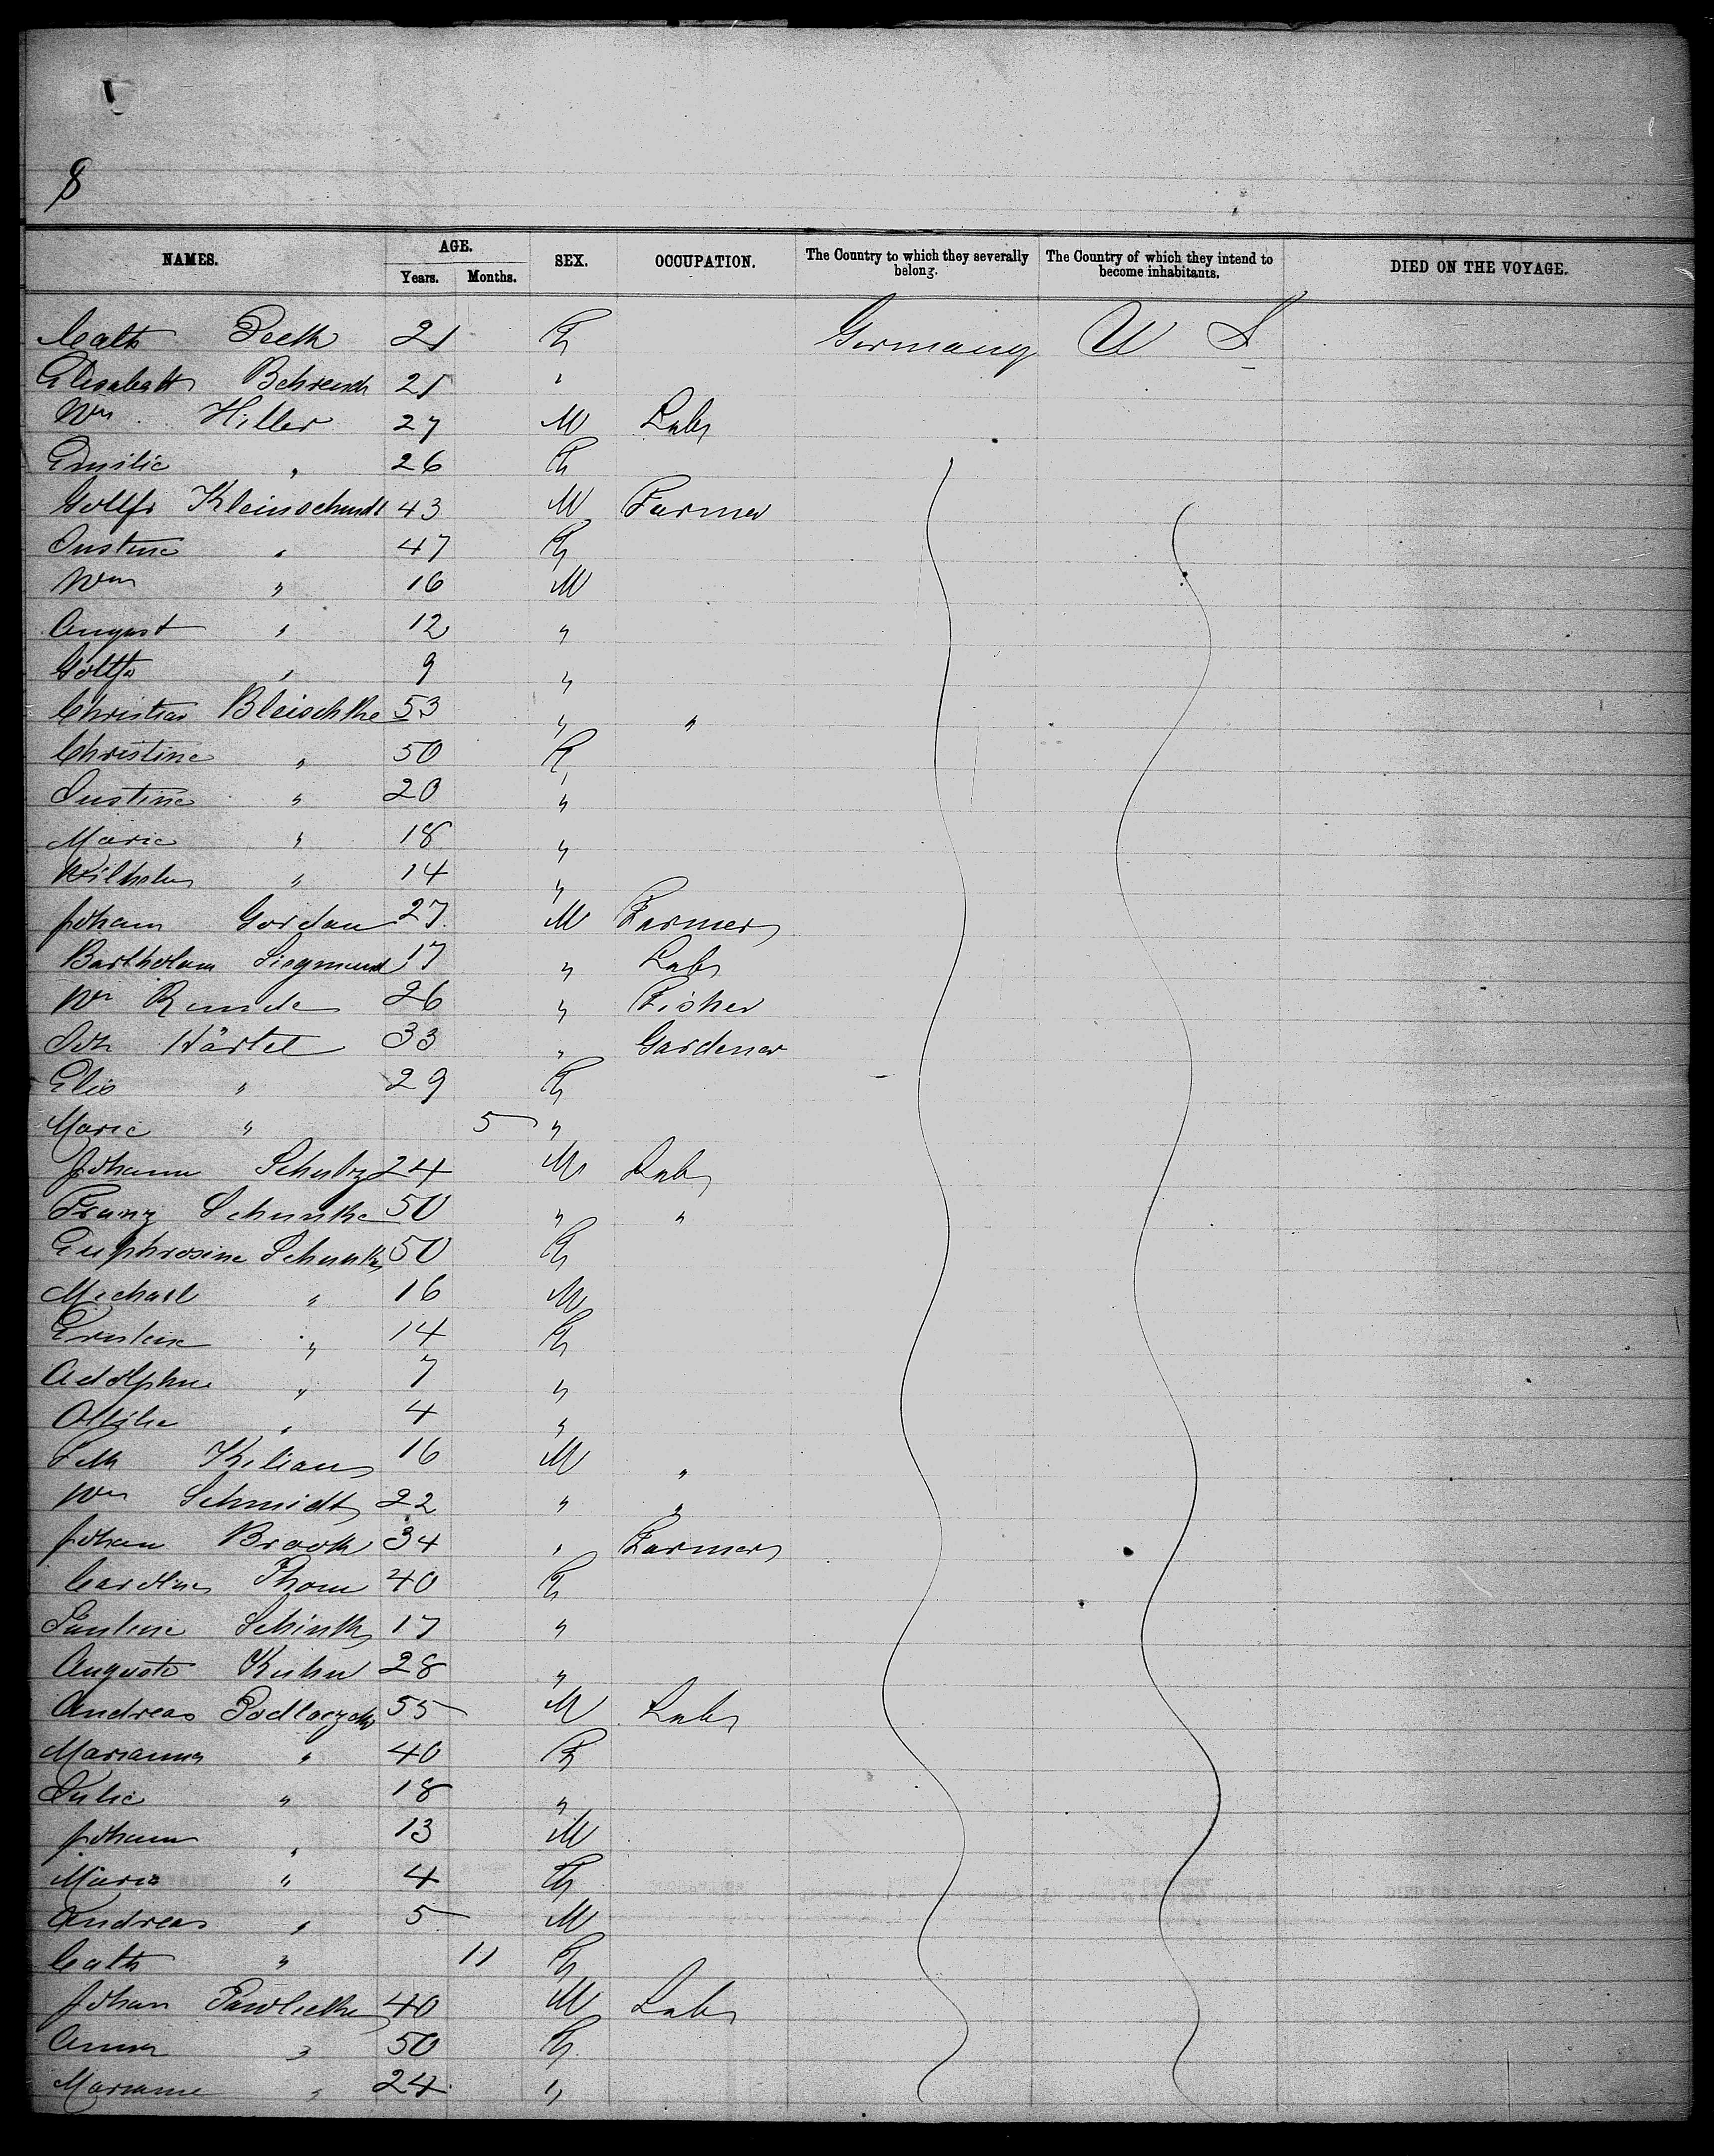 8
NAMES. AGE. SEX. OCCUPATION. The Country to which they severally belong. The Country of which they intend to become inhabitants. DIED ON THE VOYAGE.
Years. Months.
Cath 21 F Germany U S
Elisabeth Behrend 21 "
Wm Hiller 27 M Labr
Emilie " 26 F
Gottfr Kleinschmidt 43 M Farmer
Justine " 47 F
Wm " 16 M
August " 12 "
Gottfr " 9 "
Christian Bleischke 53 " "
Christine " 50 F
Justine " 20 "
Marie " 18 "
Wilhelm " 14 "
Johann Gordau 27 M Farmer
Bartholom Siegmund 17 " Labr
Wm Runde 26 " Fisher
Joh Härtel 33 " Gardener
Elis " 29 F
Marie " 5 "
Johann Schulz 24 M Labr
Franz Schunke 50 " "
Euphrosine Schunke 50 F
Michael " 16 M
Ernstine " 14 F
Adolphine " 7 "
Ottilie " 4 "
Kilian 16 M "
Wm Schmidt 22 " "
Johann Brook 34 " Farmer
Caroline Thom 40 F
Pauline Schinke 17 "
Auguste Kuhn 28 "
Andreas 55 M Labr
Marianna " 40 F
Julie " 18 "
Johann " 13 M
Marie " 4 F
Andreas " 5 M
Cath " 11 F
Johan Pawlicke 40 M Labr
Anna " 50 F
Marianne " 24 "